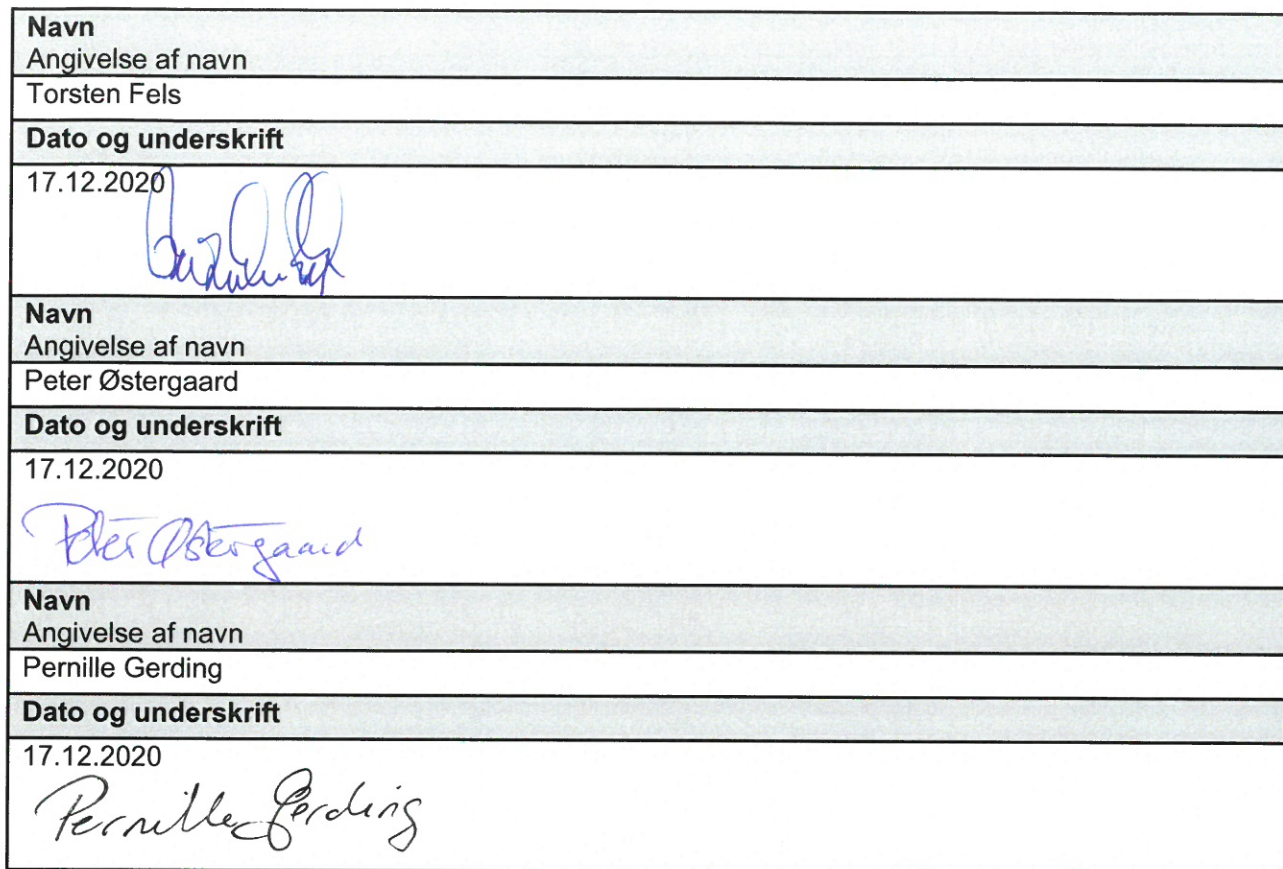 Navn
Angivelse af navn
Torsten Fels
Dato og underskrift
17.12.2020
Navn
Angivelse af navn
Peter Østergaard
Dato og underskrift
17.12.2020
Peter Østergaard
Navn
Angivelse af navn
Pernille Gerding
Dato og underskrift
17.12.2020
Pernille Gerding